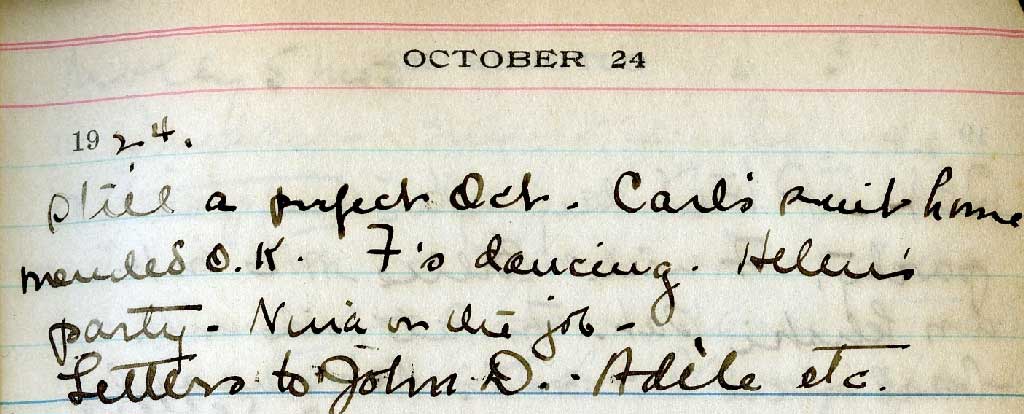 OCTOBER 24
1924.
Still a perfect Oct. Carl's suit home
mended O.K. F's dancing. Helen's
party - Nina on the job -
Letters to John D. - Adèle etc.